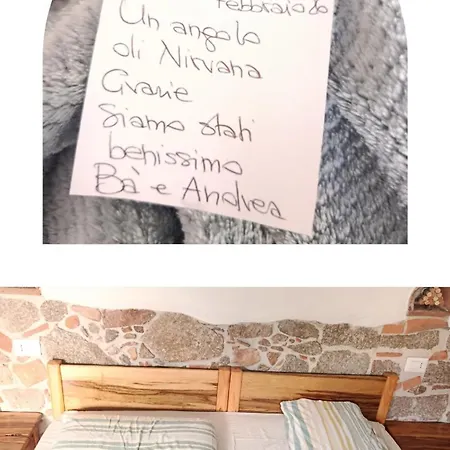 Febbraio 20
Un angolo
di Nirvana
Grazie
Siamo stati
benissimo
Bà e Andrea